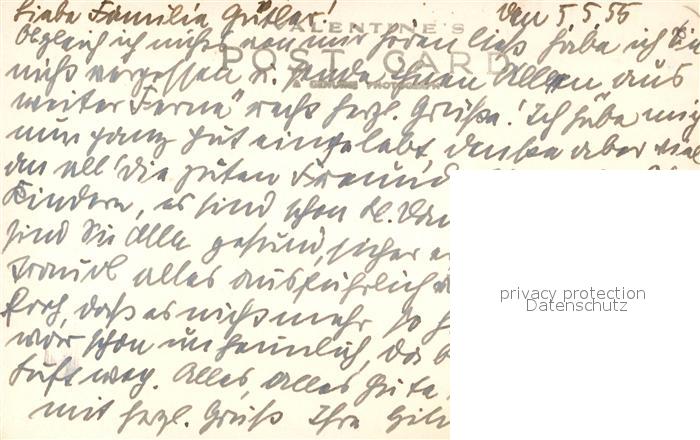 Liebe Familie Gütler! Den 5.5.55
VALENTINE'S
POST CARD
Obgleich ich nichts von mir hören ließ habe ich Sie
nicht vergessen u. sende Ihnen Allen "aus
weiter Ferne" recht herzl. Grüße! Ich habe mich
nun ganz gut eingelebt, denke aber viel
an all' die guten Freunde
Kindern, es sind schon
sind Sie Alle gesund, sicher
Traudl alles ausführlich
froh, daß es nicht mehr so
war schon unheimlich, da
Luft weg. Alles, alles Gute
mit herzl. Gruß Ihre
privacy protection
Datenschutz